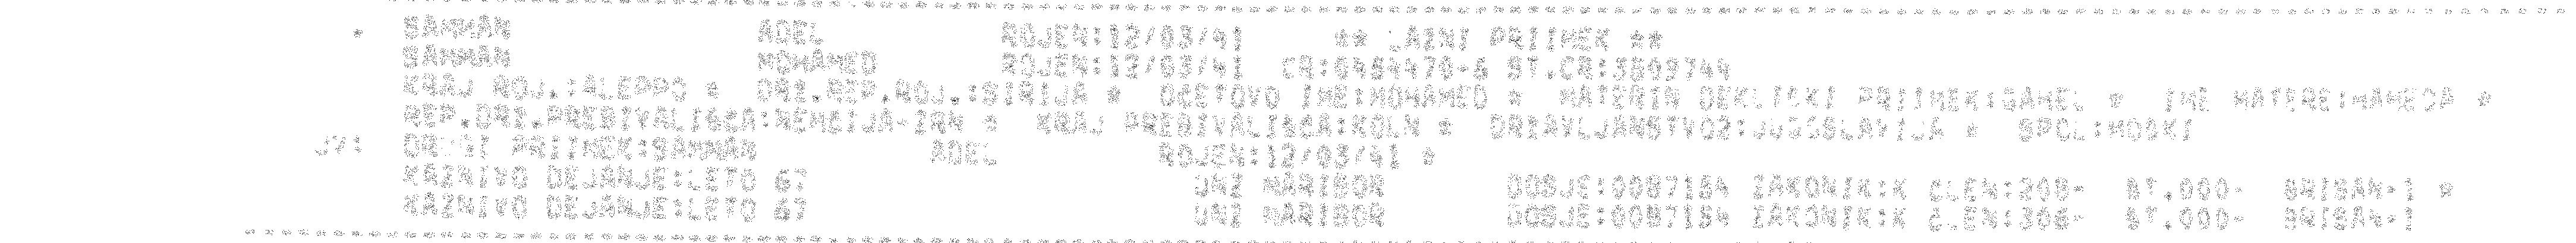 * SAMMAN ADEL ROJEN:12/03/41 ** LAZNI PRIIMEK **
SAMMAN MOHAMED ROJEN:12/03/41 CR:0484470-6 ST.CR:3509744
KRAJ ROJ.:ALEPPO * DRZ.REP.ROJ.:SIRIJA * OCETOVO IME:MOHAMED * MATERIN DEKLISKI PRIIMEK:SAMEL * IME MATERE:MAMEDA *
REP.DRZ.PREBIVALISCA:NEMCIJA-ZRN * KRAJ PREBIVALISCA:KOLN * DRZAVLJANSTVO2:JUGOSLAVIJA * SPOL:MOSKI
JV: DRUGI PRIIMEK:SAMMAN ADEL ROJEN:12/03/41 *
KAZNIVO DEJANJE:LETO 67 UNZ MARIBOR DOSJE:0087154 ZAKONIK:K CLEN:308- ST.000- BRISAN-1 *
KAZNIVO DEJANJE:LETO 67 UNZ MARIBOR DOSJE:0087154 ZAKONIK:K CLEN:306- ST.000- BRISAN-1